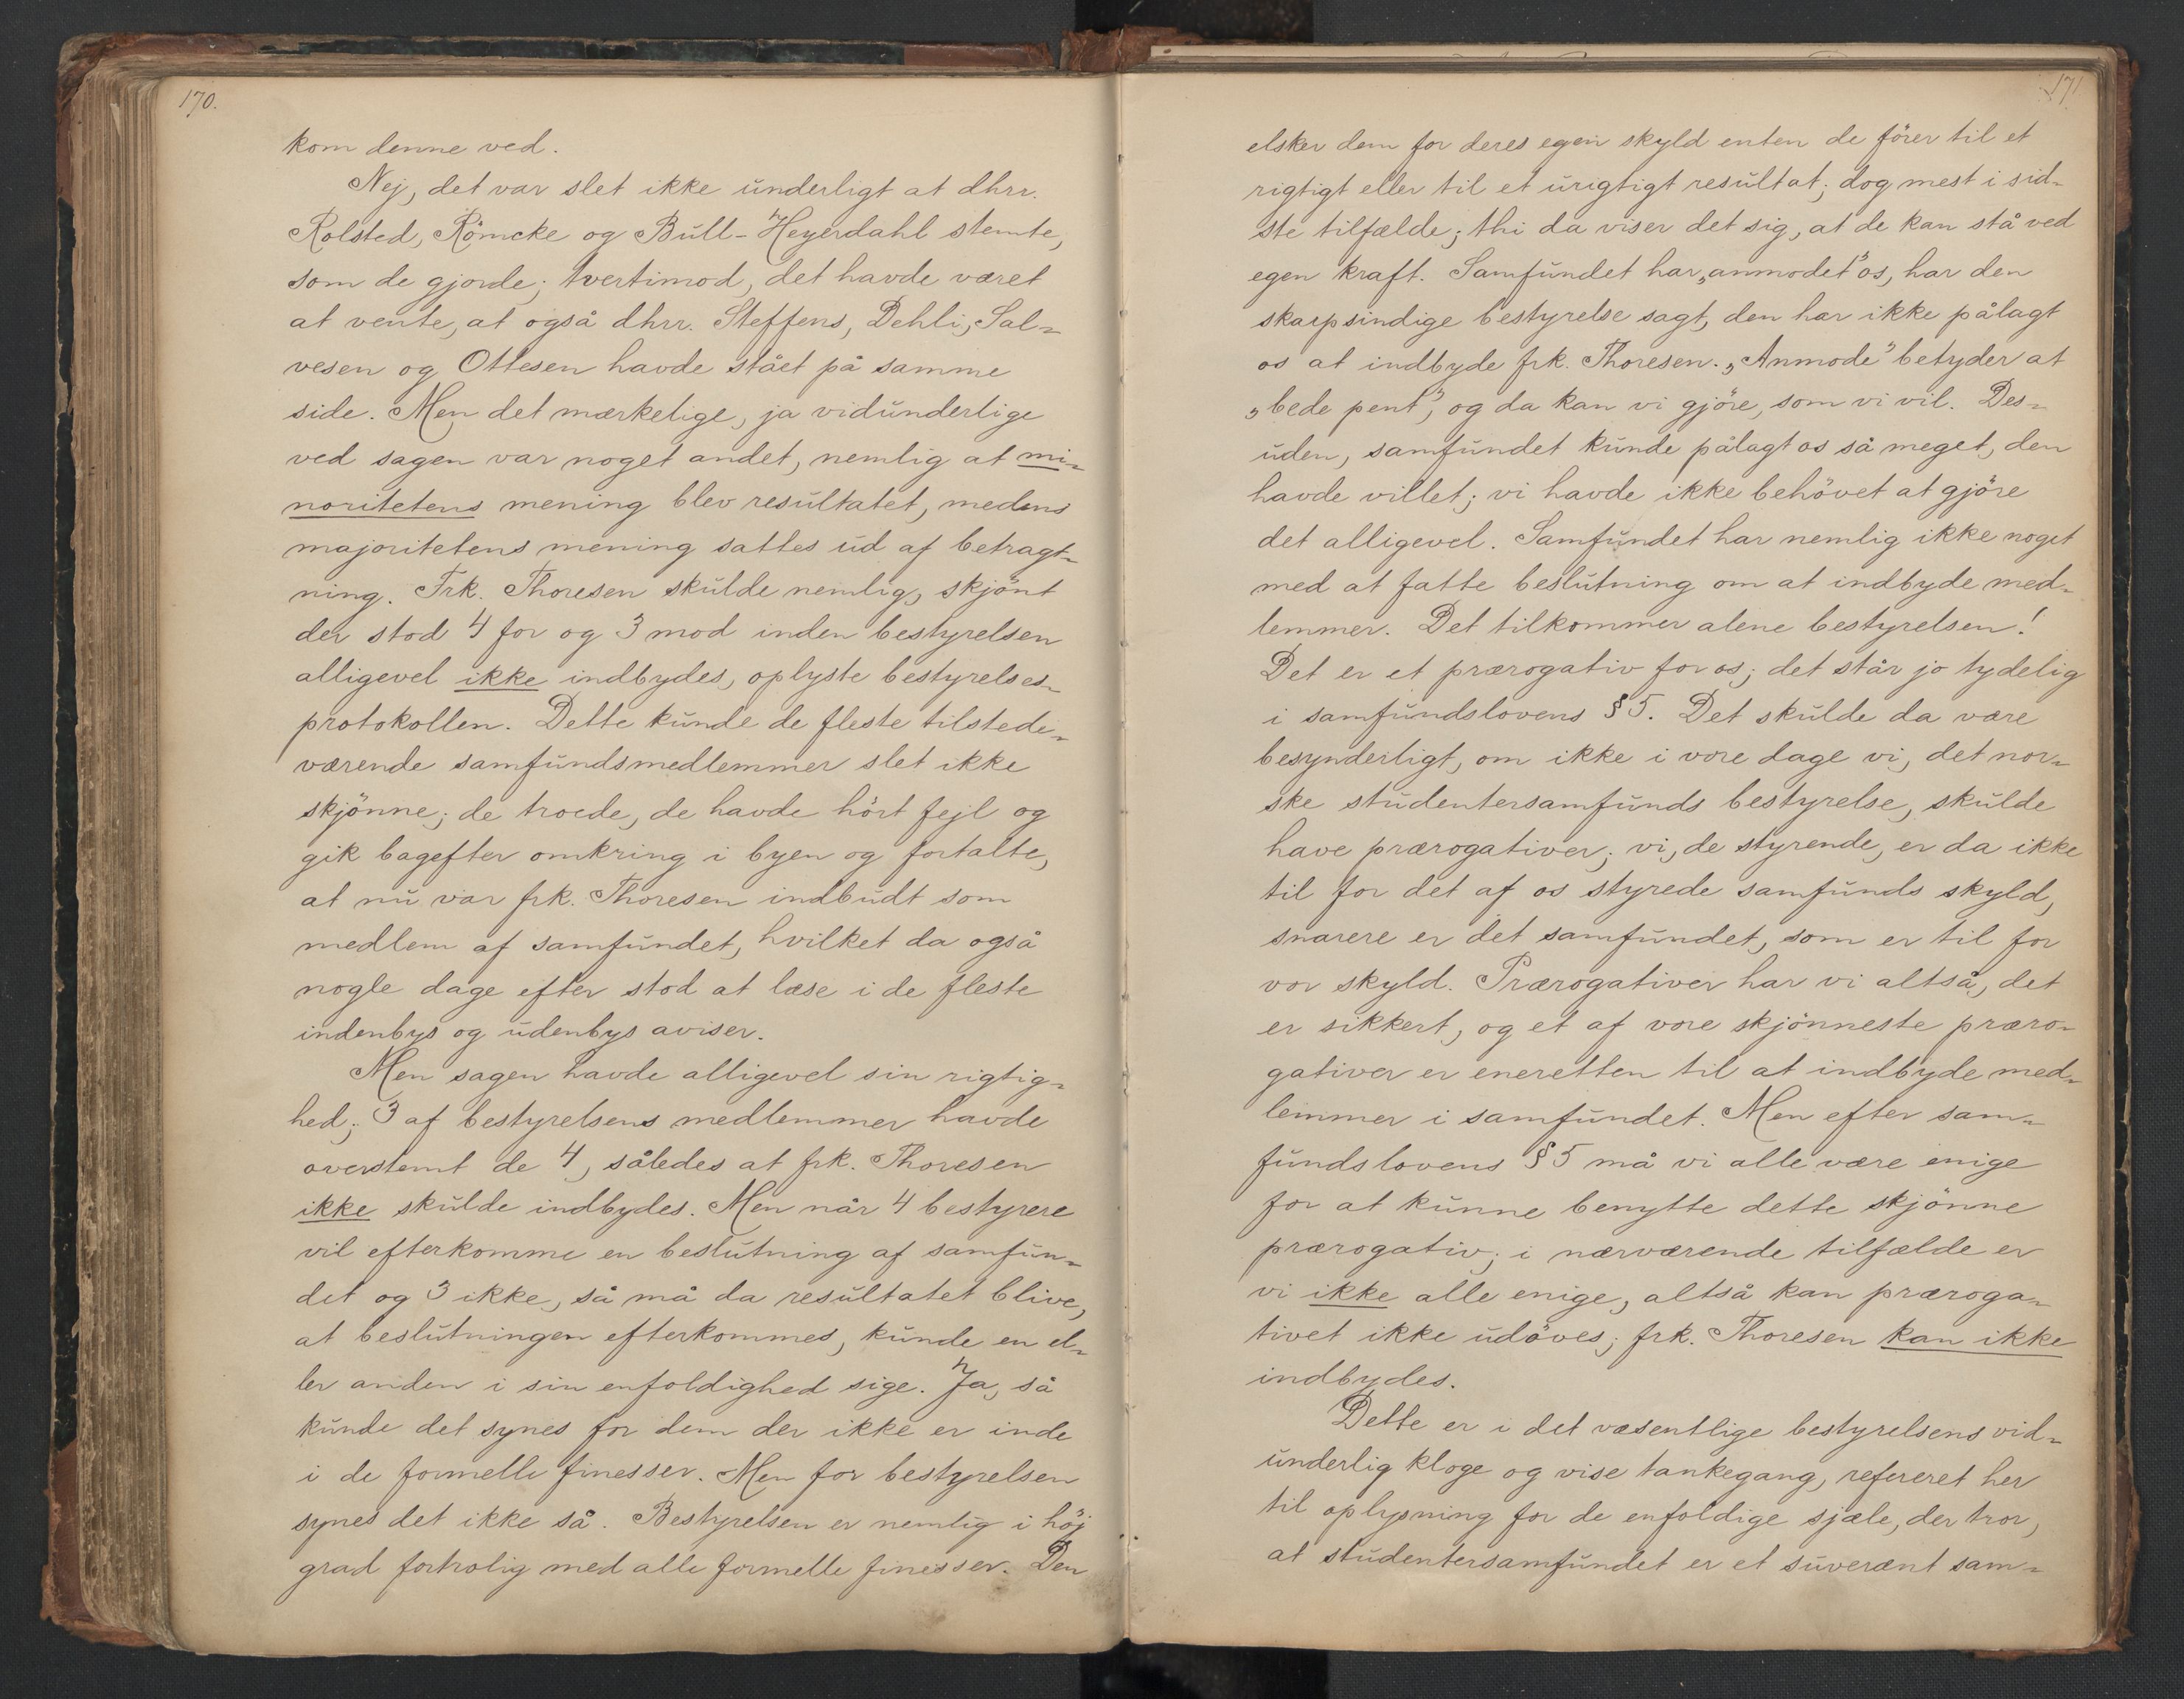 170.
kom denne ved.
Nej, det var slet ikke underligt at dhrr.
Rolsted, Römcke og Bull-Heyerdahl stemte,
som de gjorde; tvertimod, det havde været
at vente, at også dhrr. Steffens, Dehli, Sal-
vesen og Ottesen havde stået på samme
side. Men det mærkelige, ja vidunderlige
ved sagen var noget andet, nemlig at mi-
noritetens mening blev resultatet, medens
majoritetens mening sattes ud af betragt-
ning. Frk. Thoresen skulde nemlig, skjönt
der stod 4 for og 3 mod inden bestyrelsen
alligevel ikke indbydes, oplyste bestyrelses-
protokollen. Dette kunde de fleste tilstede-
værende samfundsmedlemmer slet ikke
skjönne; de troede, de havde hört fejl og
gik bagefter omkring i byen og fortalte,
at nu var frk. Thoresen indbudt som
medlem af samfundet, hvilket da også
nogle dage efter stod at læse i de fleste
indenbys og udenbys aviser.
Men sagen havde alligevel sin rigtig-
hed; 3 af bestyrelsens medlemmer havde
overstemt de 4, således at frk. Thoresen
ikke skulde indbydes. Men når 4 bestyrere
vil efterkomme en beslutning af samfun-
det og 3 ikke, så må da resultatet blive,
at beslutningen efterkommes, kunde en el-
ler anden i sin enfoldighed sige. Ja, så
kunde det synes for dem der ikke er inde
i de formelle finesser. Men for bestyrelsen
synes det ikke så. Bestyrelsen er nemlig i höj
grad fortrolig med alle formelle finesser. Den
171
elsker dem for deres egen skyld enten de förer til et
rigtigt eller til et urigtigt resultat; dog mest i sid-
ste tilfælde; thi da viser det sig, at de kan stå ved
egen kraft. Samfundet har „anmodet” os, har den
skarpsindige bestyrelse sagt, den har ikke pålagt
os at indbyde frk. Thoresen. „Anmode” betyder at
„bede pent”, og da kan vi gjöre, som vi vil. Des-
uden, samfundet kunde pålagt os så meget, den
havde villet; vi havde ikke behövet at gjöre
det alligevel. Samfundet har nemlig ikke noget
med at fatte beslutning om at indbyde med-
lemmer. Det tilkommer alene bestyrelsen!
Det er et prærogativ for os; det står jo tydelig
i samfundslovens § 5. Det skulde da være
besynderligt, om ikke i vore dage vi, det nor-
ske studentersamfunds bestyrelse, skulde
have prærogativer; vi, de styrende, er da ikke
til for det af os styrede samfunds skyld,
snarere er det samfundet, som er til for
vor skyld. Prærogativer har vi altså, det
er sikkert, og et af vore skjönneste præro-
gativer er eneretten til at indbyde med-
lemmer i samfundet. Men efter sam-
fundslovens § 5 må vi alle være enige
for at kunne benytte dette skjönne
prærogativ; i nærværende tilfælde er
vi ikke alle enige, altså kan præroga-
tivet ikke udöves; frk. Thoresen kan ikke
indbydes.
Dette er i det væsentlige bestyrelsens vid-
underlig kloge og vise tankegang, refereret her
til oplysning for de enfoldige sjæle, der tror,
at studentersamfundet er et suverænt sam-